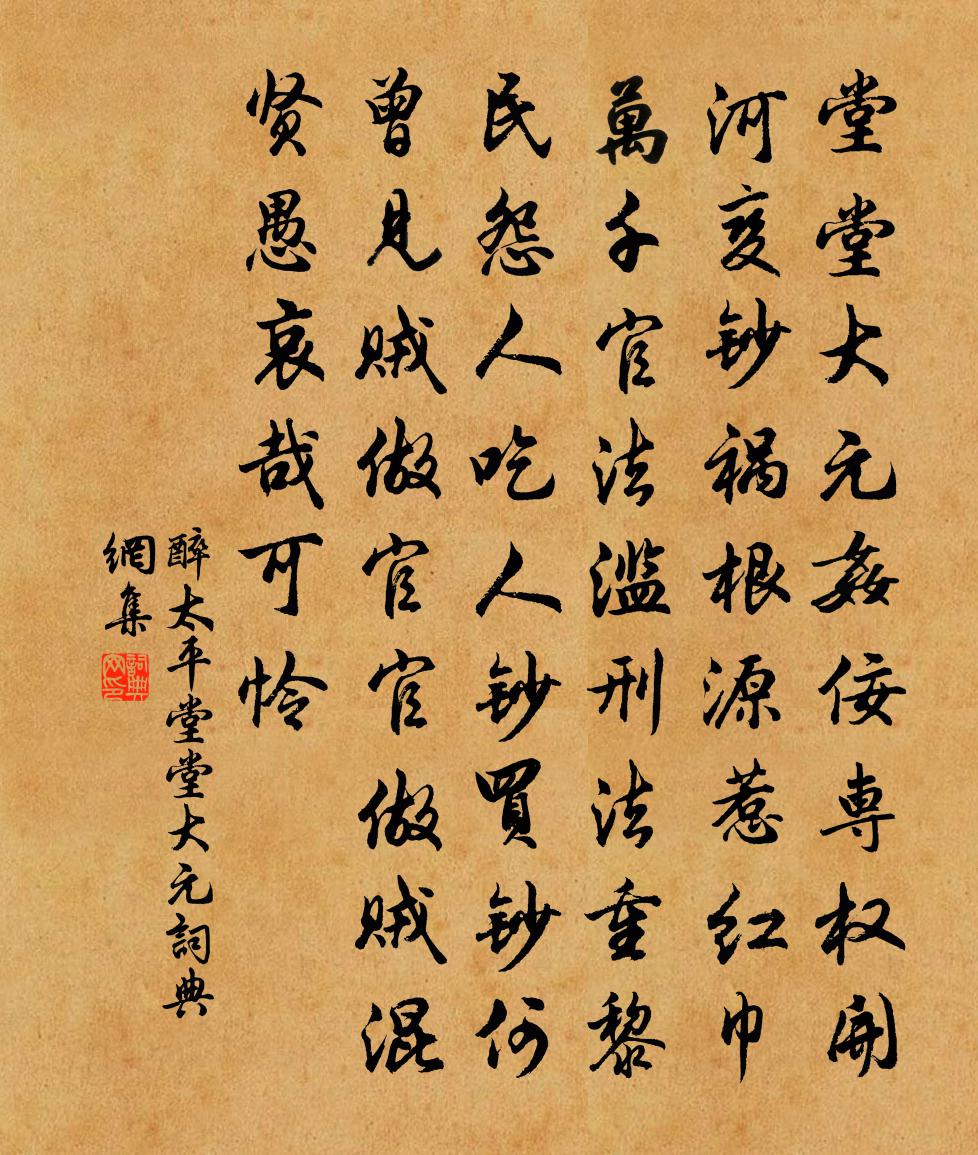 堂堂大元姦佞専权開
河变鈔祸根源惹红巾
萬千官法滥刑法重黎
民怨人吃人鈔買鈔何
曾見贼做官官做贼混
贤愚哀哉可怜
醉太平堂堂大元詞典
網集
詞典